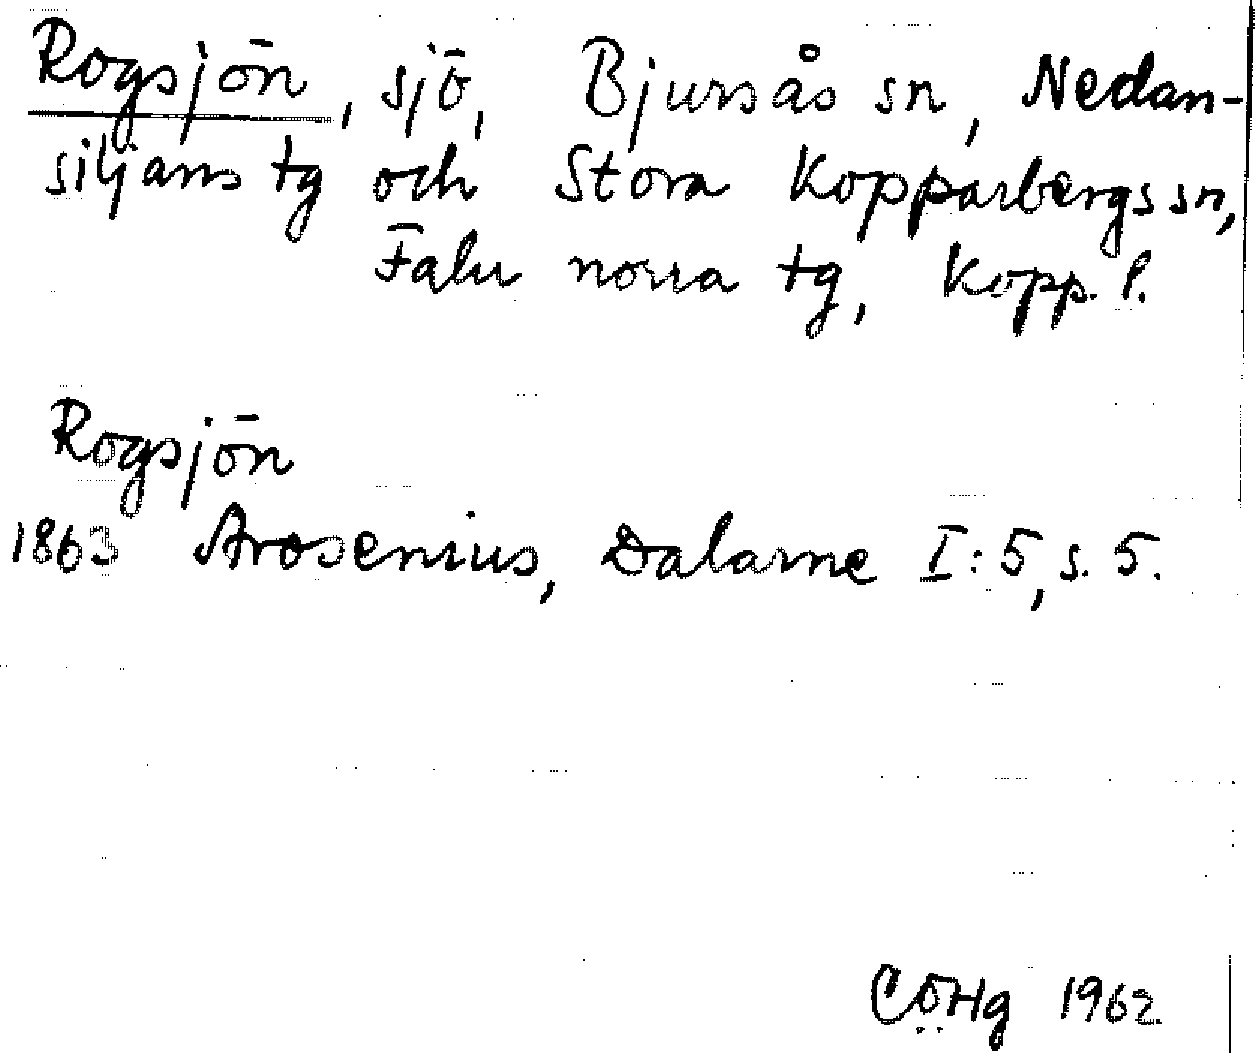 Rogsjön, sjö, Bjursås sn, Nedan-
siljans tg och Stora Kopparbergs sn,
Falu norra tg, Kopp. l.
Rogsjön
1863 Arosenius, Dalarne I:5, s. 5.
CÖHg 1962